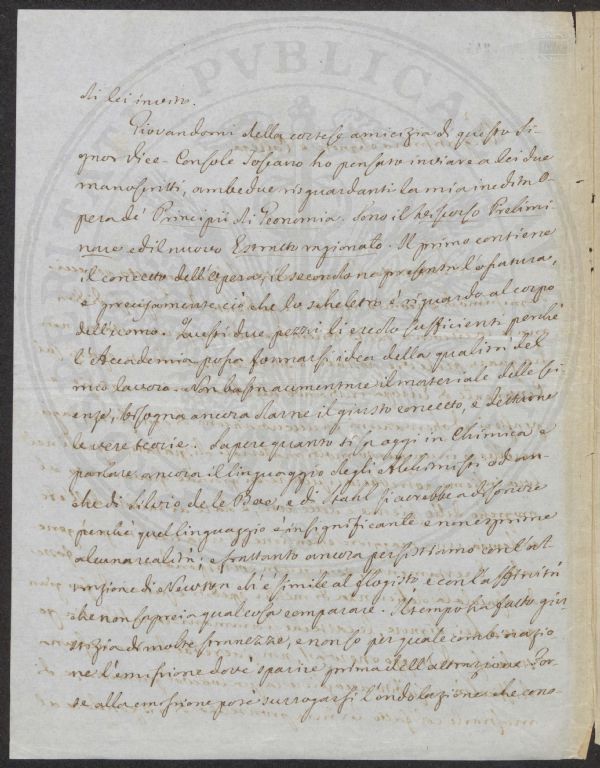 di lei invito.
Giovandomi della cortese amicizia di questo Si-
gnor Vice-Console Sosiano ho pensato inviare a lei due
manoscritti, ambedue risguardanti la mia inedita O-
pera de' Principii di Geonomia. Sono il discorso Prelimi-
nare ed il nuovo Estratto ragionato. Il primo contiene
il concetto dell'Opera, il secondo ne presenta l'ossatura,
e precisamente ciò che lo scheletro è riguardo al corpo
dell'uomo. Questi due pezzi li credo sufficienti perché
l'Accademia possa formarsi idea della qualità del
mio lavoro. Non basta aumentare il materiale delle Sci-
enze, bisogna ancora darne il giusto concetto, e dettarne
le vere teorie. Sapere quanto si sa oggi in Chimica e
parlare ancora il linguaggio degli Alchimisti od an-
che di Silvio de le Boe, e di Stahl si avrebbe a disonore
perché quel linguaggio è insignificante e non esprime
alcuna realtà, e frattanto ancora persistiamo con l'at-
trazione di Newton ch'è simile al flogisto e con l'affinità
che non saprei a qual cosa comparare. Il tempo ha fatto giu-
stizia di molte stranezze, e non so per quale combinazio
ne l'emissione dové sparire prima dell'attrazione. For-
se alla emissione poté surrogarsi l'ondolazione che cono-